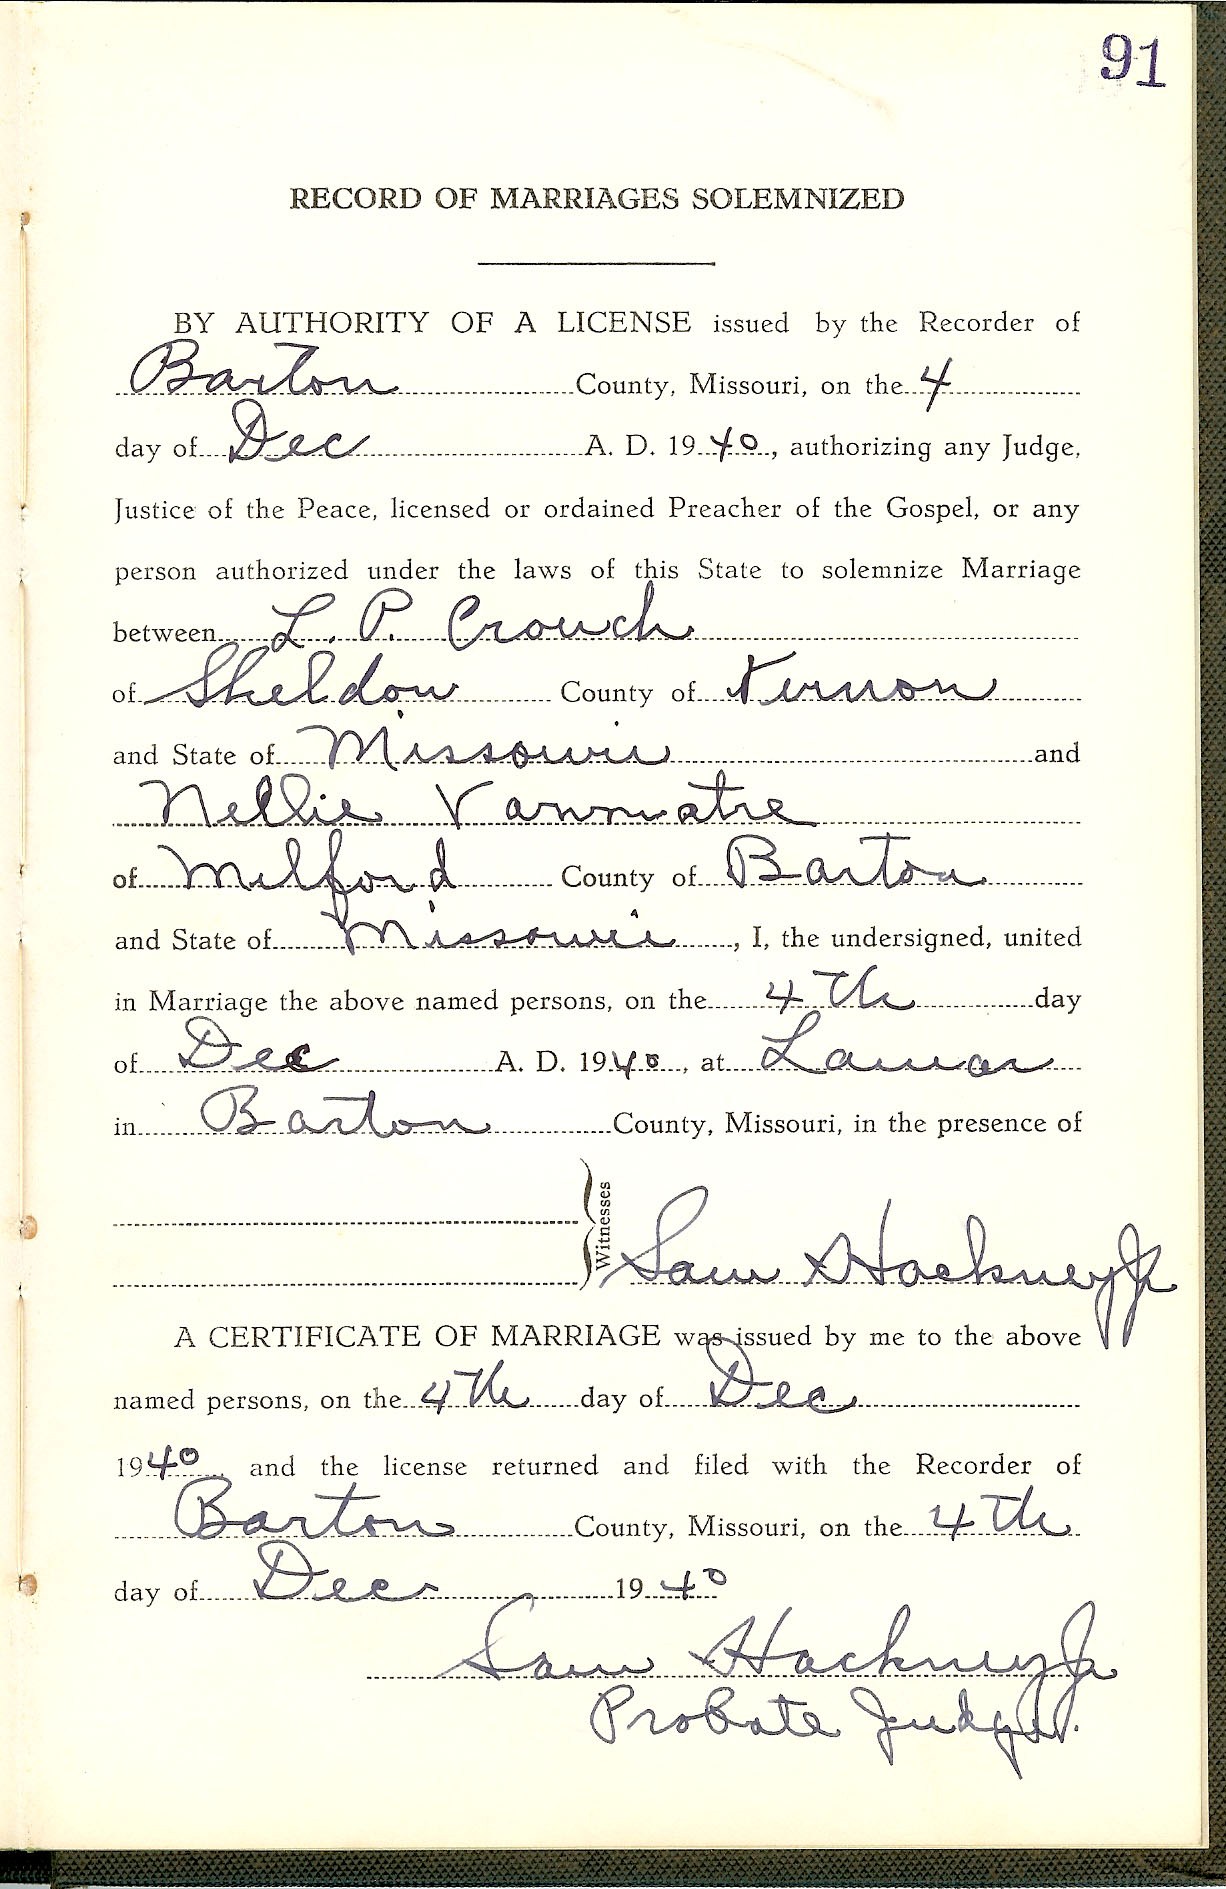 91
RECORD OF MARRIAGES SOLEMNIZED
BY AUTHORITY OF A LICENSE issued by the Recorder of
Barton County, Missouri, on the 4
day of Dec A. D. 1940, authorizing any Judge,
Justice of the Peace, licensed or ordained Preacher of the Gospel, or any
person authorized under the laws of this State to solemnize Marriage
between L. P. Crouch
of Sheldon County of Vernon
and State of Missouri and
Nellie Vanmatre
of Milford County of Barton
and State of Missouri, I, the undersigned, united
in Marriage the above named persons, on the 4th day
of Dec A. D. 1940, at Lamar
in Barton County, Missouri, in the presence of
Witnesses
Sam Hackney Jr
A CERTIFICATE OF MARRIAGE was issued by me to the above
named persons, on the 4th day of Dec
1940, and the license returned and filed with the Recorder of
Barton County, Missouri, on the 4th
day of Dec 1940
Sam Hackney Jr
Probate Judge.